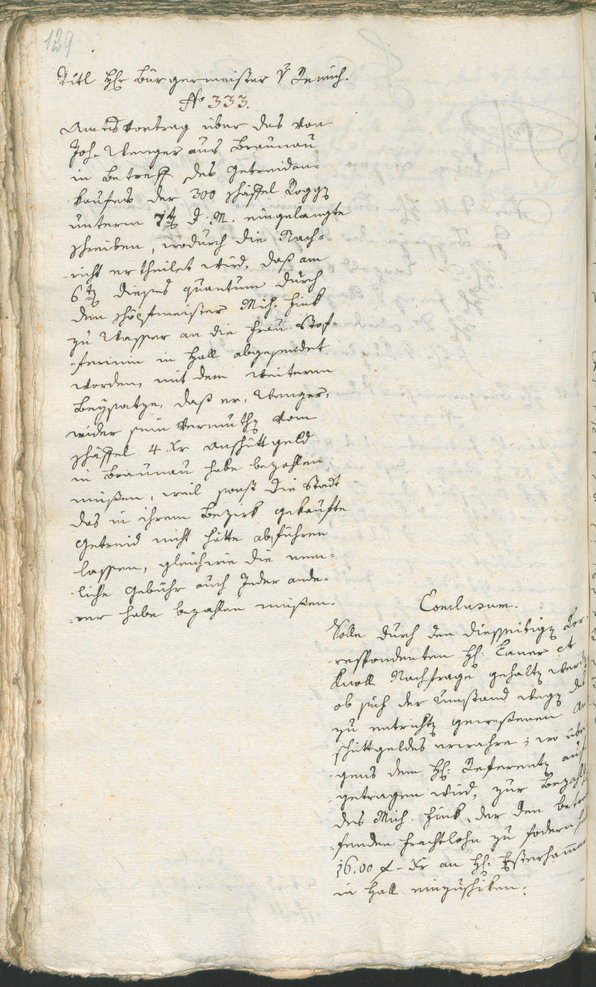 129
Titl H. Bürgermeister v Jenich.
No 333.
Amtsvortrag über das von
Joh. Wenger aus Braunau
in Betreff des Getreidan-
kaufes der 300 schäffel Rogg
unterm 7t d. M. eingelangte
schreiben, wodurch die Nach-
richt ertheilet wird, daß am
6t dieses quantum durch
den schöpfmeister Mich. Fink
zu Wasser an die Frau Stof-
in Hall abgesendet
worden, mit dem weitern
Beysatze, daß er, Wenger,
wider sein Vermuth vom
schäffel 4 Xr Anschüttgeld
in Braunau habe bezahlen
müßen, weil sonst die Stadt
das in ihrem Bezirk gekaufte
Getreid nicht hätte abführen
lassen, gleichwie die nem-
liche Gebühr auch Jeder ande-
rer habe bezahlen müßen.
Conclusum.
Solle durch den diesseitig Cor
respondenten H. Tauer et
Knoll Nachfrage gehalt werd
ob sich der Umstand weg des
zu entricht gewesenen An
schüttgeldes erwahre; wo übri
gens dem H. Referent auf
getragen wird, zur Bezahl
des Mich. Fink, der den betre
fenden Frachtlohn zu fodern h
16.00 f - Xr an H.
in Hall einzuschiken.